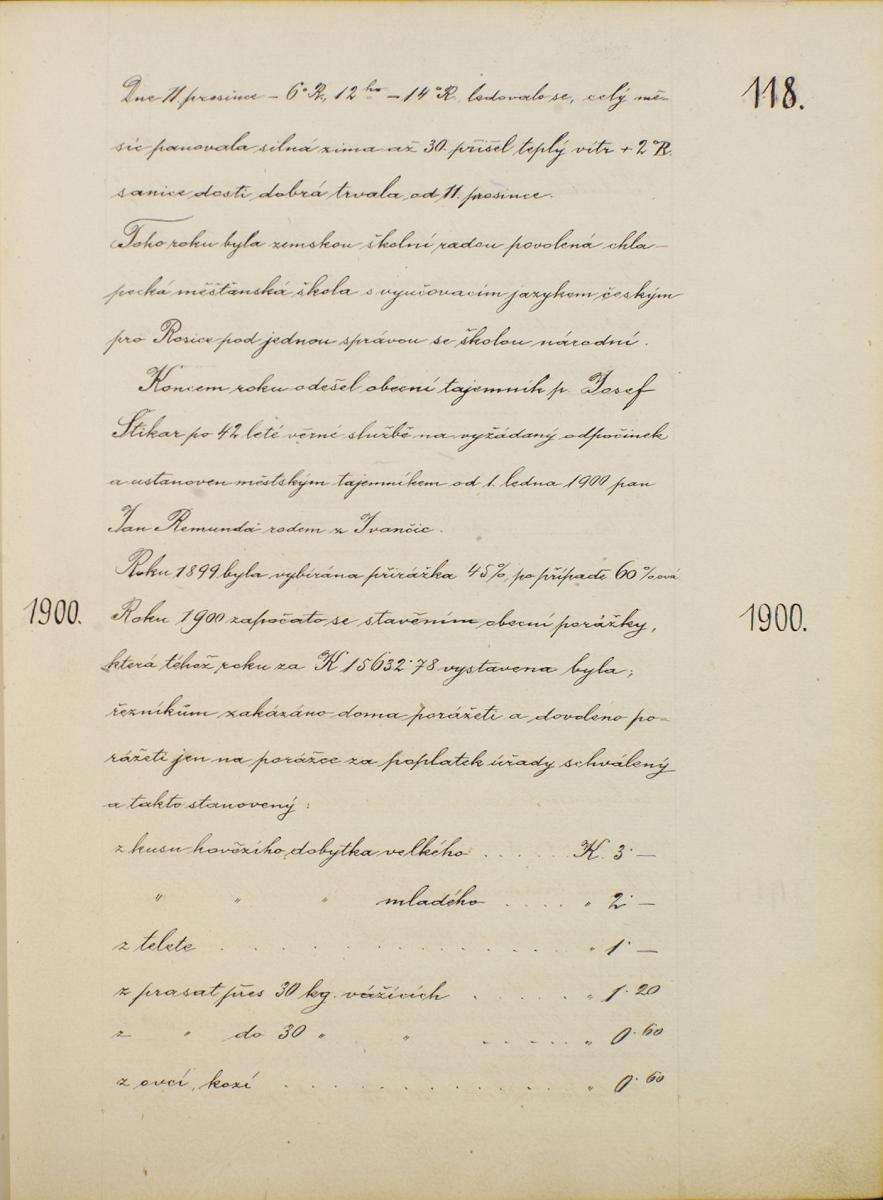 118.
Dne 11 prosince – 6°R, 12ho – 14°R, ledovalo se, celý mě-
síc panovala silná zima až 30. přišel teplý vítr + 2°R.
sanice dosti dobrá trvala od 11. prosince.
Toho roku byla zemskou školní radou povolená chla-
pecká měšťanská škola s vyučovacím jazykem českým
pro Rosice pod jednou správou se školou národní.
Koncem roku odešel obecní tajemník p. Josef
Štikar po 42 leté věrné službě na vyžádaný odpočinek
a ustanoven městským tajemníkem od 1. ledna 1900 pan
Jan Remunda rodem z Ivančic.
Roku 1899 byla vybírána přirážka 45%, po případě 60%ová
1900. Roku 1900 započato se stavěním obecní porážky, 1900.
která téhož roku za K 15632·78 vystavena byla;
řezníkům zakázáno doma porážeti a dovoleno po-
rážeti jen na porážce za poplatek úřady schválený
a takto stanovený:
z kusu hovězího dobytka velkého . . . . . K. 3·—
" " " mladého . . . . " 2·—
z telete . . . . . . . . . . . . . . " 1·—
z prasat přes 30 kg. vážících . . . . . " 1·20
z " do 30 " " . . . . . " 0·60
z ovcí, kozí . . . . . . . . . . . . . " 0·60